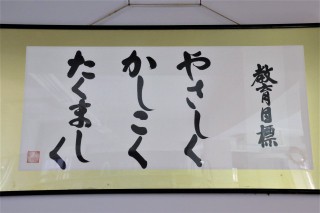 教育目標
やさしく
かしこく
たくましく